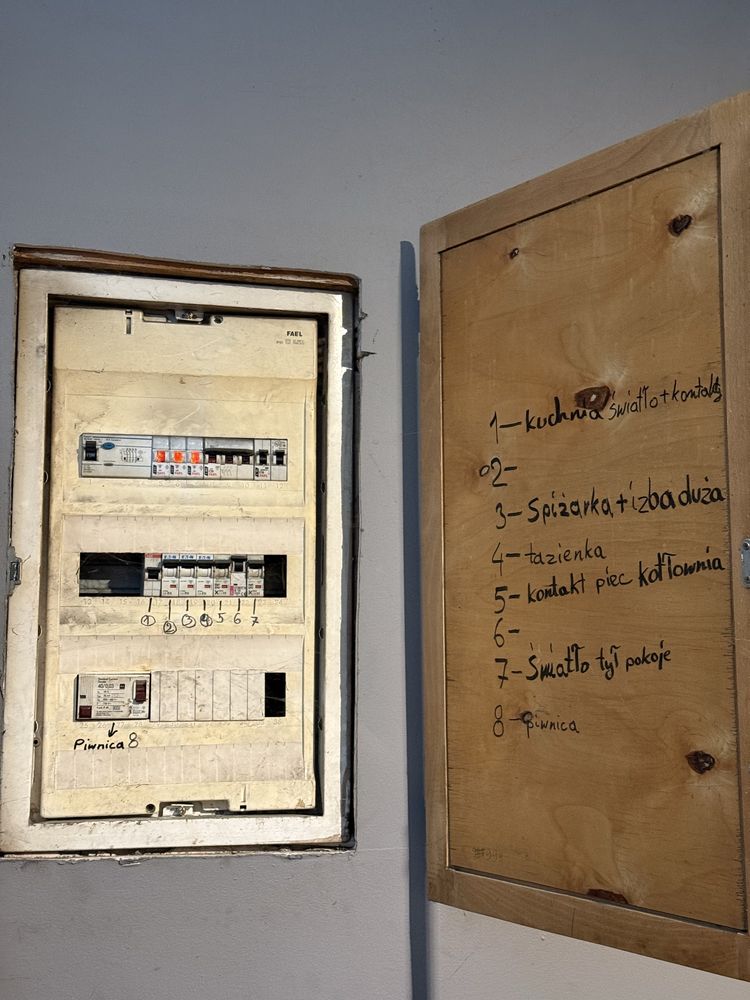 FAEL
1 2 3 4 5 6 7
Piwnica 8
1- kuchnia światło + kontakty
2-
3- Spiżarka + izba duża
4- łazienka
5- kontakt piec kotłownia
6-
7- Światło tył pokoje
8- piwnica